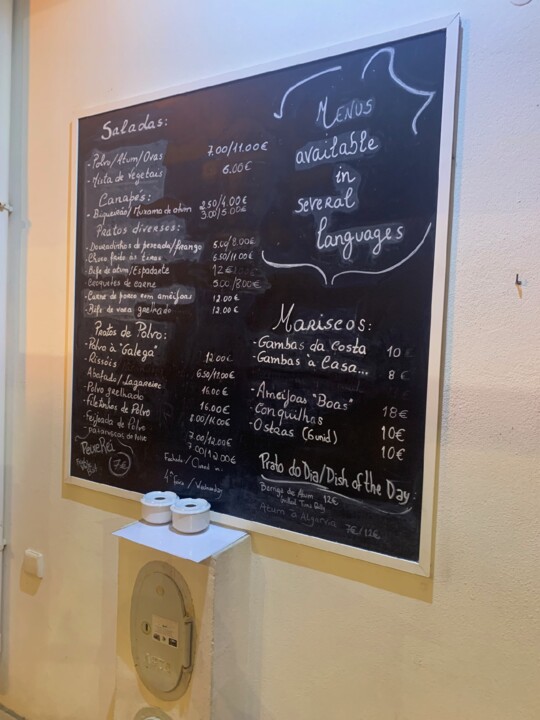 Saladas:
- Polvo/Atum/Ovas 7.00/11.00€
- Mista de vegetais 6.00€
Canapés:
- Biqueirão/Muxama de atum 2.50/4.00€
3.00/5.00€
Pratos diversos:
- Douradinhos de pescada/Frango 5.00/8.00€
- Choco frito às tiras 6.50/11.00€
- Bife de atum/Espadarte 12€
- Croquetes de carne 5.00/8.00€
- Carne de porco com amêijoas 12.00€
- Bife de vaca grelhado 12.00€
Pratos de Polvo:
- Polvo à "Galega" 12.00€
- Rissóis 6.50/11.00€
- Abafado/Lagareiro 16.00€
- Polvo grelhado 16.00€
- Filetinhos de Polvo 8.00/16.00€
- Feijoada de Polvo 7.00/12.00€
- Pataniscas de Polvo 7.00/12.00€
7€
Fechado/Closed
4ª feira/Wednesday
Menus
available
in
several
languages
Mariscos:
- Gambas da Costa 10€
- Gambas à Casa... 8€
- Amêijoas "Boas" 18€
- Conquilhas 10€
- Ostras (6unid) 10€
Prato do Dia/Dish of the Day:
Barriga de Atum 12€
Tuna Belly
Atum à Algarvia 7€/12€